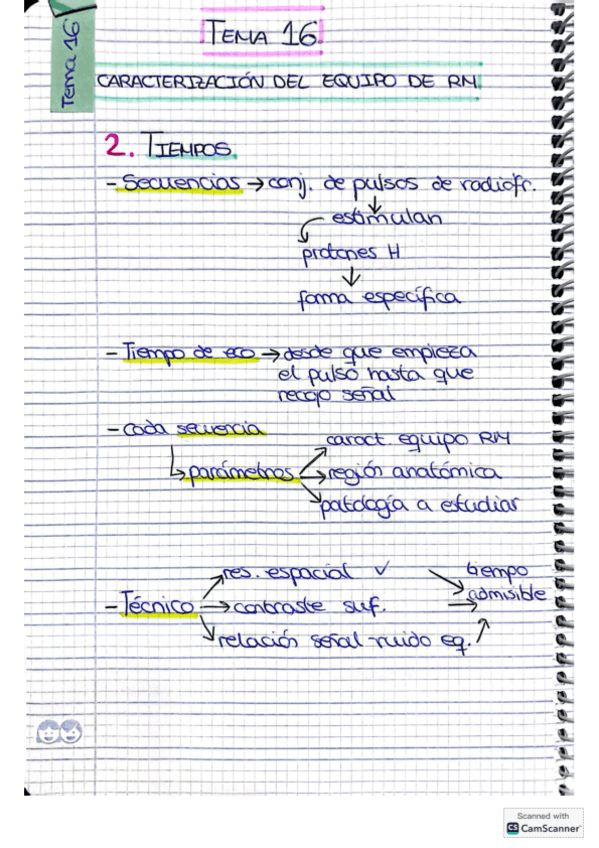 Tema 16
TEMA 16
CARACTERIZACIÓN DEL EQUIPO DE RM.
2. TIEMPOS.
- Secuencias → conj. de pulsos de radiofr.
↓
estimulan
protones H
↓
forma específica
- Tiempo de eco → desde que empieza
el pulso hasta que
recojo señal
- cada secuencia
caract. equipo RM
↳ parámetros → región anatómica
patología a estudiar
res. espacial ✓ tiempo
- Técnico → contraste suf. → admisible
relación señal ruido eq.
Scanned with
CS CamScanner